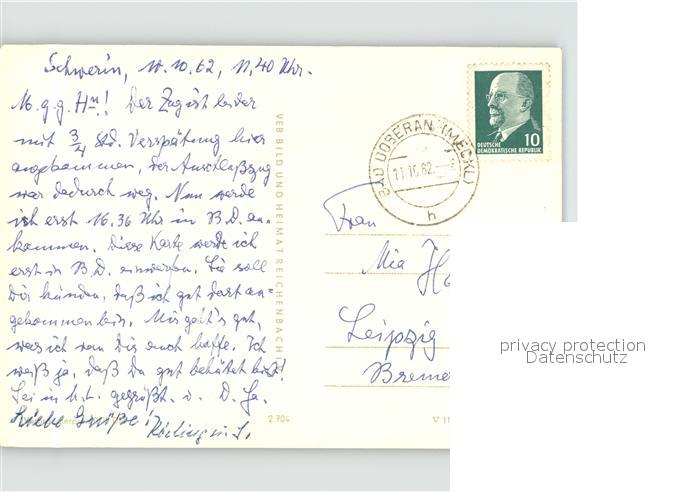 Schwerin, 10.10.62, 11,40 Uhr.
M. g. g. Hn! Der Zug ist leider
mit 3/4 Std. Verspätung hier
angekommen, der Anschlußzug
war dadurch weg. Nun werde
ich erst 16.36 Uhr in B.D. an-
kommen. Diese Karte werde ich
erst in B.D. einwerfen. Sie soll
Dir künden, daß ich gut dort an=
gekommen bin. Mir geht's gut,
was ich von Dir auch hoffe. Ich
weiß ja, daß Du gut behütet bist!
Sei in h.L. gegrüßt. v. D.
Liebe Grüße!
VEB BILD UND HEIMAT REICHENBACH
2 704
V 11
BAD DOBERAN (MECKL)
11.10.62
h
DEUTSCHE
DEMOKRATISCHE REPUBLIK
10
Frau
Mia
Leipzig
Breme
privacy protection
Datenschutz